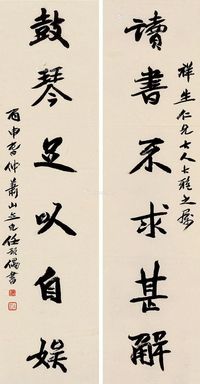 祥生仁兄大人大雅之属
讀書不求甚解
鼓琴足以自娱
丙申春仲蕭山任預偶書